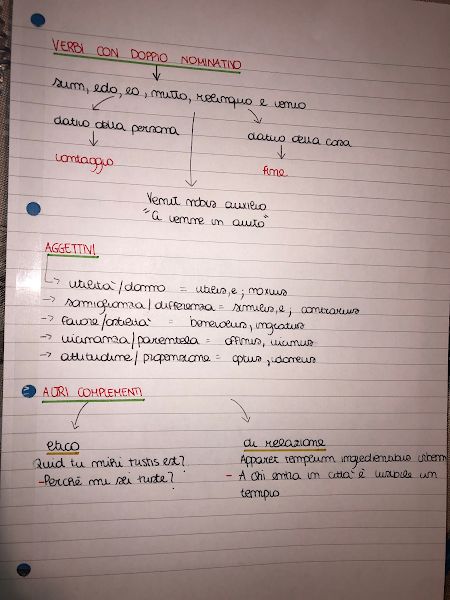 VERBI CON DOPPIO NOMINATIVO
sum, edo, eo, mitto, relinquo e venio
dativo della persona
dativo della cosa
vantaggio
fine
Venit nobis auxilio
"Ci venne in aiuto"
AGGETTIVI
-> utilità/danno = utilis,e ; noxius
-> somiglianza/differenza = similis,e ; contrarius
-> favore/ostilità = benevolus, ingratus
-> vicinanza/parentela = affinis, vicinus
-> attitudine/propensione = aptus, idoneus
ALTRI COMPLEMENTI
etico
di relazione
Quid tu mihi tristis est?
Apparet templum ingredientibus urbem
-Perché mi sei triste?
- A chi entra in città è visibile un
tempio